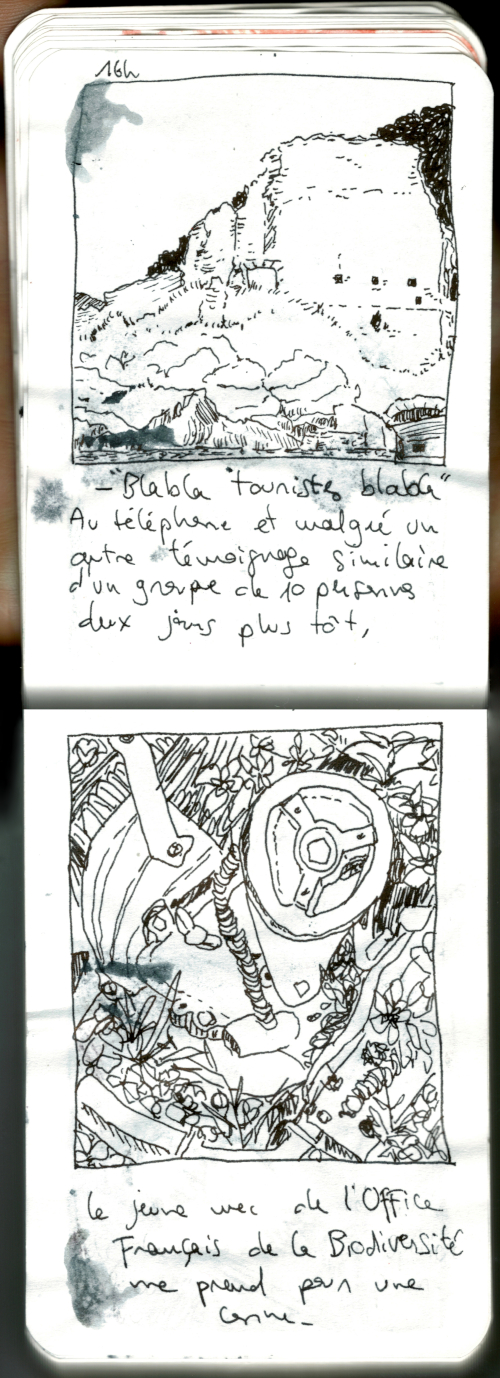 16h
- "Blabla touristes blabla"
Au téléphone et malgré un
autre témoignage similaire
d'un groupe de 10 personnes
deux jours plus tôt,
le jeune mec de l'Office
Français de la Biodiversité
me prend pour une